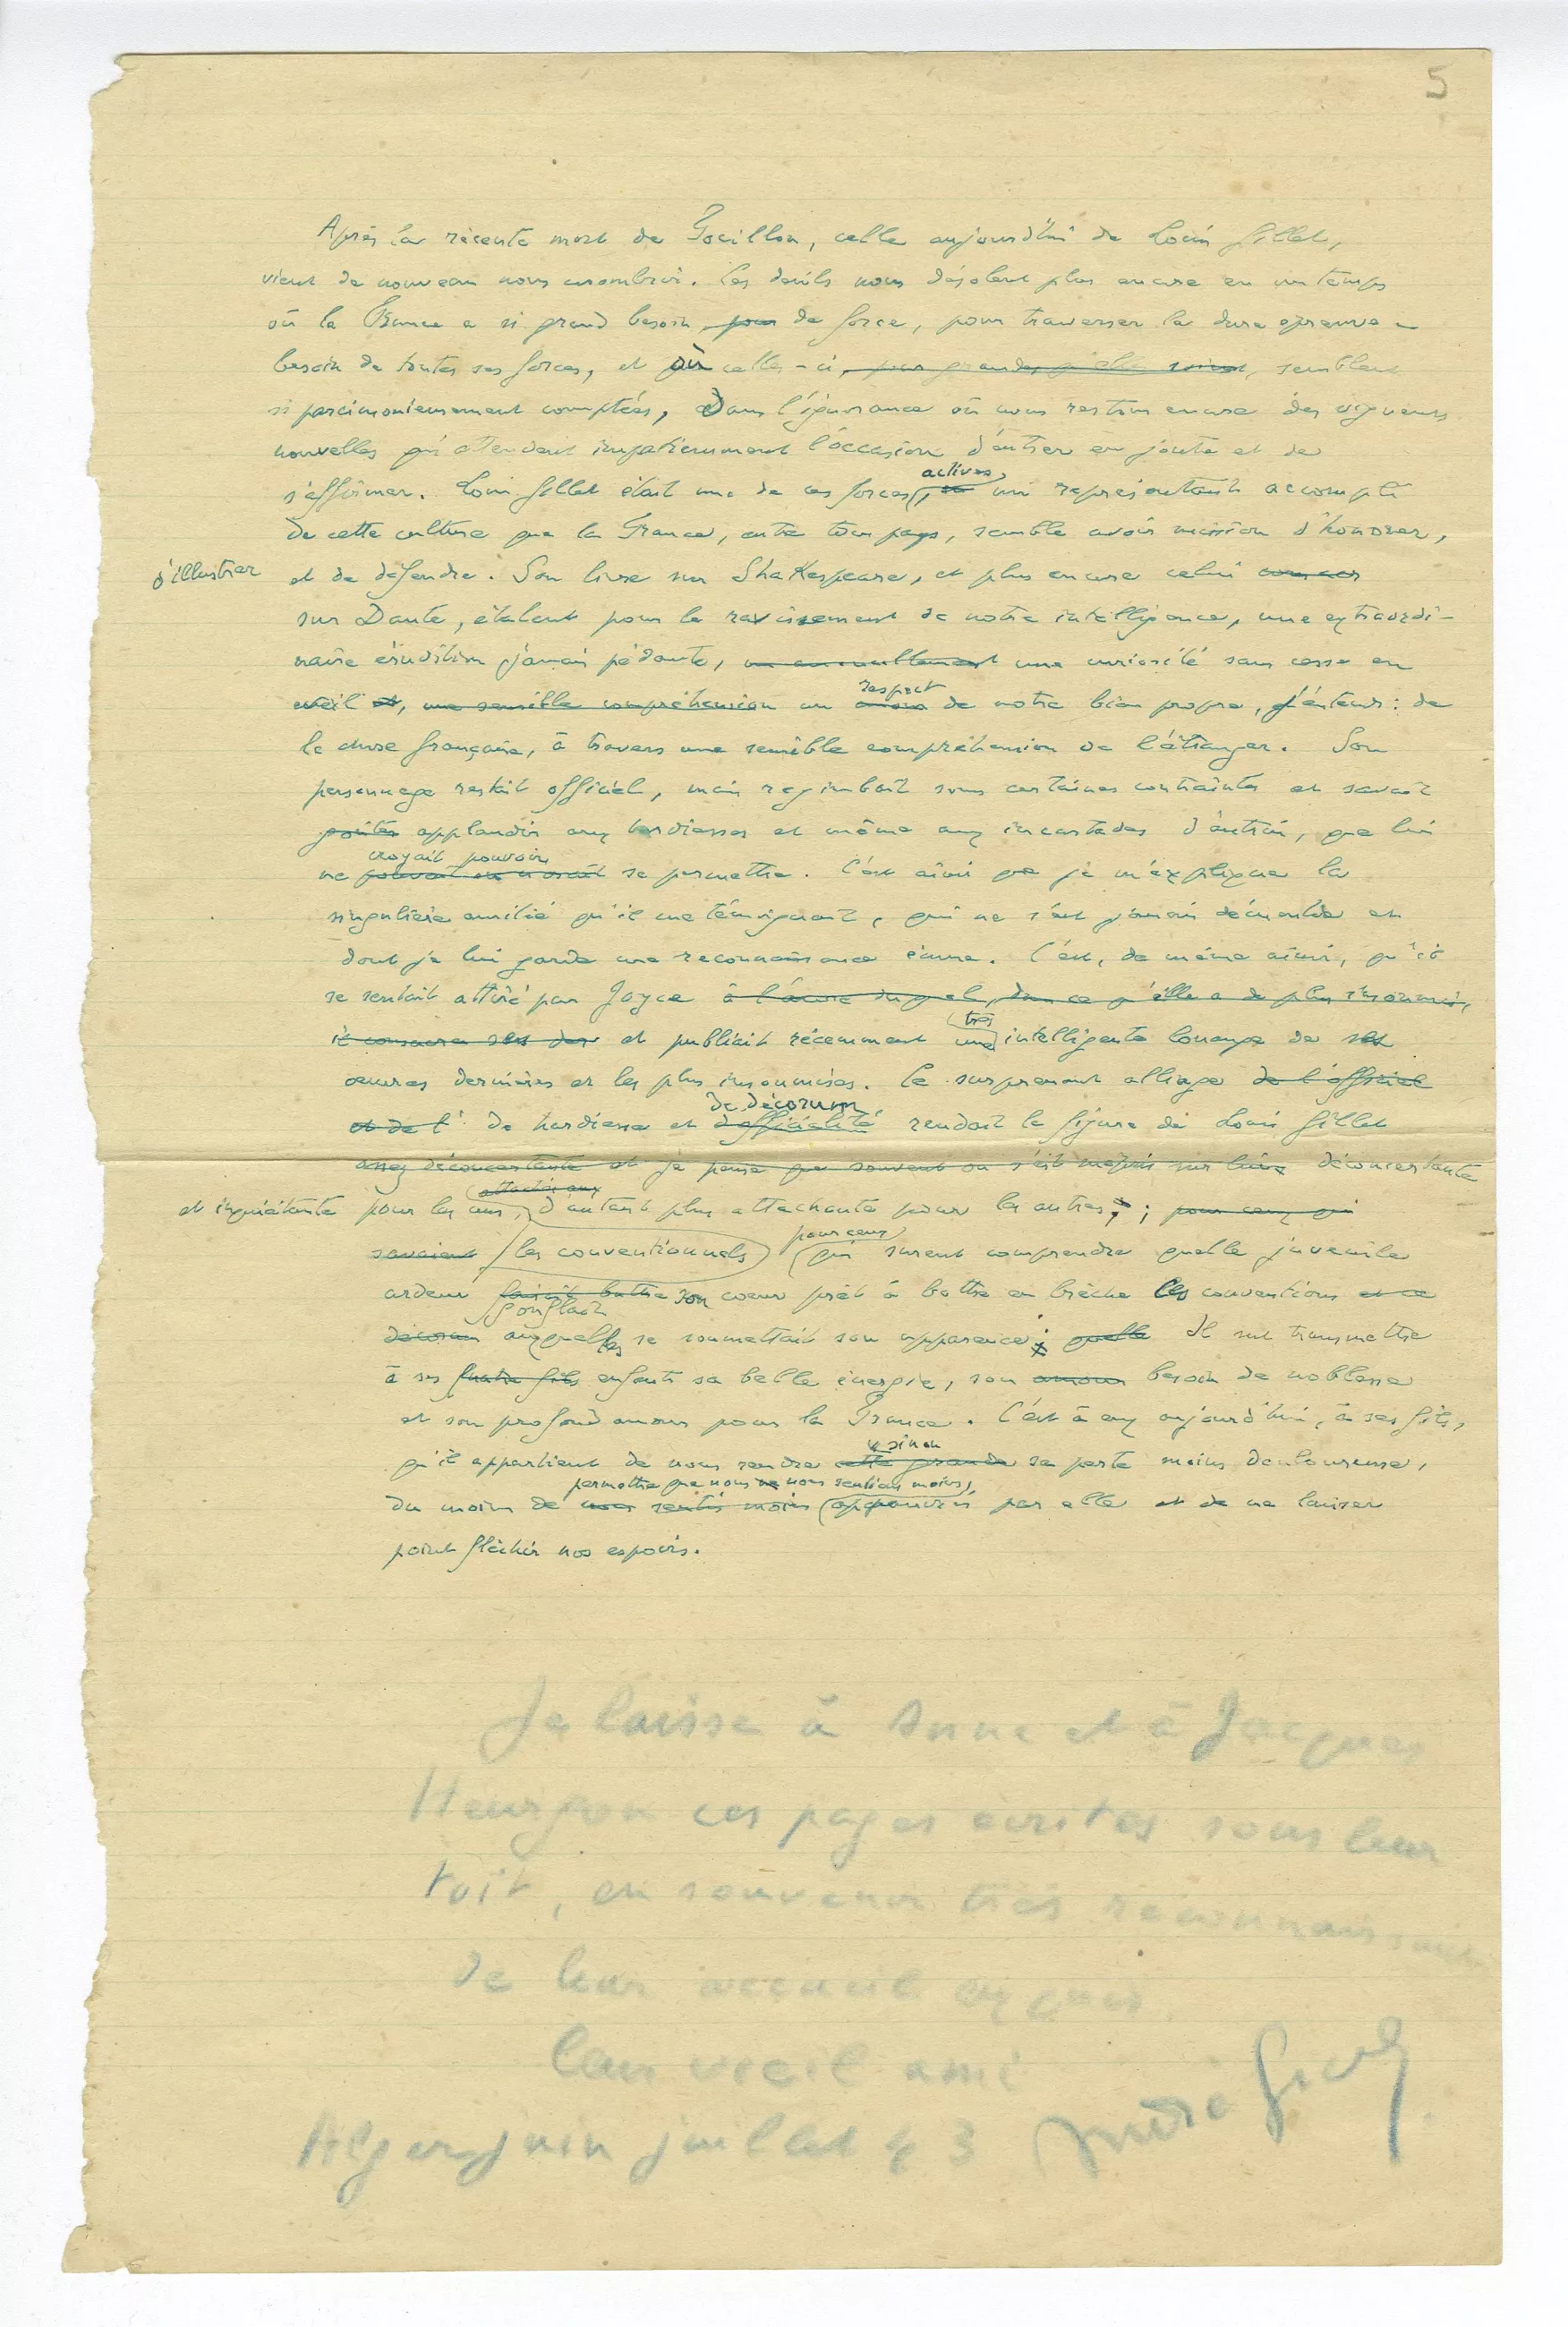 5
Après la récente mort de Focillon, celle aujourd'hui de Louis Gillet,
vient de nouveau nous assombrir. Ces deuils nous désolent plus encore en un temps
où la France a si grand besoin, pour de force, pour traverser la dure épreuve –
besoin de toutes ses forces, et où celles-ci, pour grandes qu'elles soient, semblent
si parcimonieusement comptées, Dans l'ignorance où nous restons encore des vigueurs
nouvelles qui attendent impatiemment l'occasion d'entrer en joute et de
s'affirmer. Louis Gillet était une de ces forces actives, un représentant accompli
de cette culture que la France, entre tous pays, semble avoir mission d'honorer,
d'illustrer et de défendre. Son livre sur Shakespeare, et plus encore celui
sur Dante, étalent pour le ravissement de notre intelligence, une extraordi-
naire érudition jamais pédante, une curiosité sans cesse en
éveil et, une sensible compréhension un respect de notre bien propre, j'entends : de
la chose française, à travers une sensible compréhension de l'étranger. Son
personnage restait officiel, mais regimbait sous certaines contraintes et savait
goûter applaudir aux hardiesses et même aux incartades d'autrui, que lui
ne croyait pouvoir se permettre. C'est ainsi que je m'explique la
singulière amitié qu'il me témoignait, qui ne s'est jamais démentie et
dont je lui garde une reconnaissance émue. C'est, de même ainsi, qu'il
se sentait attiré par Joyce dans ce qu'elle a de plus insoumis,
il consacra ses et publiait récemment une très intelligente louange de ses
œuvres dernières et les plus insoumises. Ce surprenant alliage de l'officiel
et de l' de hardiesse et d'officialité de décorum rendait la figure de Louis Gillet
assez déconcertante et je pense que souvent on s'est mépris sur lui déconcertante
et inquiétante pour les uns, les conventionnels d'autant plus attachante pour les autres ; pour ceux qui
savaient pour ceux qui surent comprendre quelle juvénile
ardeur faisait battre gonflait son cœur prêt à battre en brèche les conventions et ce
décorum auxquelles se soumettait son apparence ; quelle Il sut transmettre
à ses quatre fils enfants sa belle énergie, son amour besoin de noblesse
et son profond amour pour la France. C'est à eux aujourd'hui, à ses fils,
qu'il appartient de nous rendre cette grande sinon sa perte moins douloureuse,
du moins de permettre que nous nous sentions moins appauvris par elle et de ne laisser
point fléchir nos espoirs.
Je laisse à Anne et à Jacques
Heurgon ces pages écrites sous leur
toit, en souvenir très reconnaissant
de leur accueil exquis
leur vieil ami
Alger juin juillet 43 André Gide